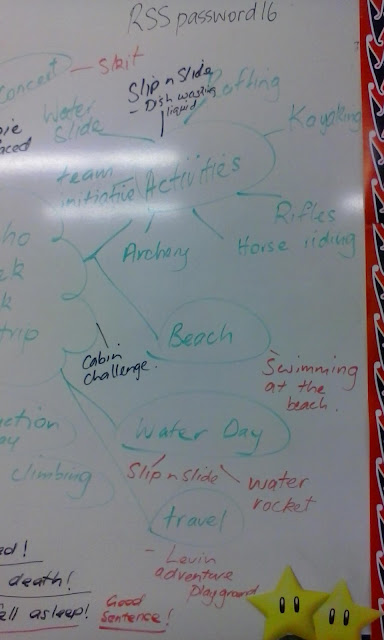 RSS password16
Concert - Skit
Slip n Slide
- Dish washing
liquid
Rafting
Water
Slide
Kayaking
team
initiative
Activities
Rifles
Horse riding
Archery
trip
Beach
Cabin
challenge.
Swimming
at the
beach.
Water Day
Slip n Slide
water
rocket
climbing
travel
- Levin
adventure
playground
death!
asleep!
Good
Sentence!